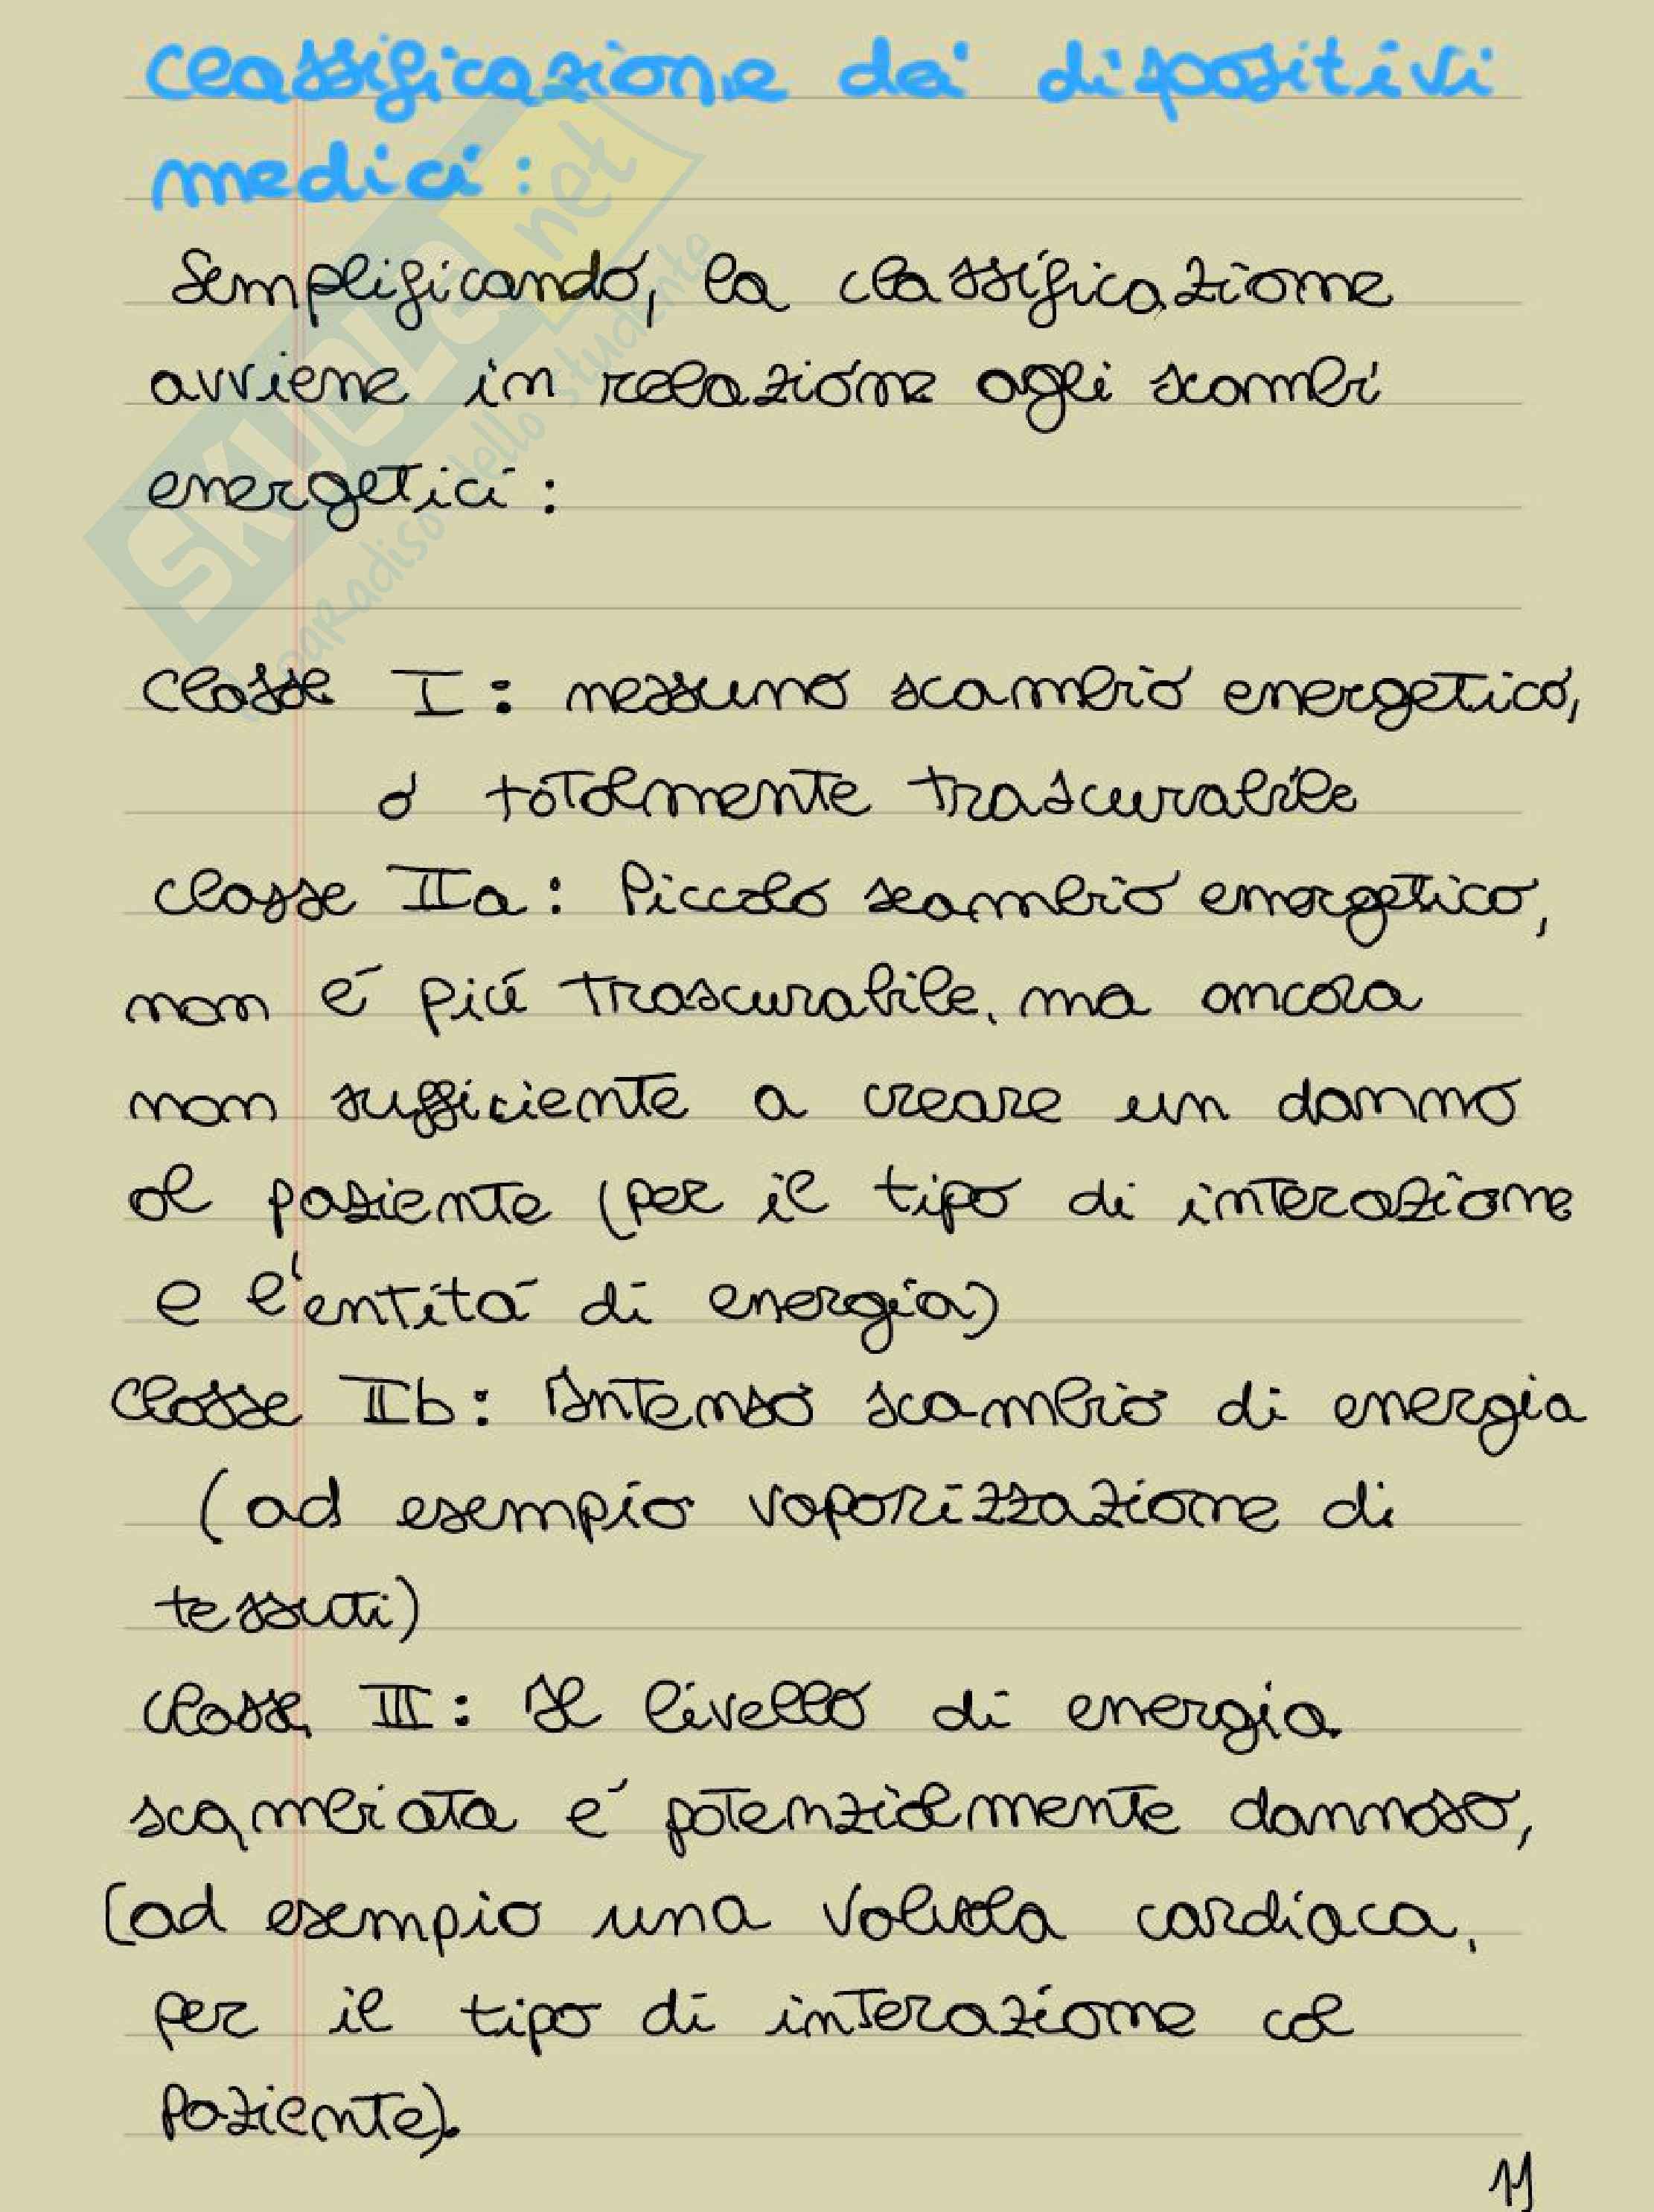 classificazione dei dispositivi
medici:
Semplificando, la classificazione
avviene in relazione agli scambi
energetici:
classe I: nessuno scambio energetico,
o totalmente trascurabile
classe IIa: Piccolo scambio energetico,
non é piú trascurabile, ma ancora
non sufficiente a creare un danno
al paziente (per il tipo di interazione
e l'entitá di energia)
classe IIb: Intenso scambio di energia
(ad esempio vaporizzazione di
tessuti)
classe III: Il livello di energia
scambiata é potenzialmente dannoso,
(ad esempio una valvola cardiaca,
per il tipo di interazione col
paziente).
11
SKUOLA.net
il paradiso dello studente